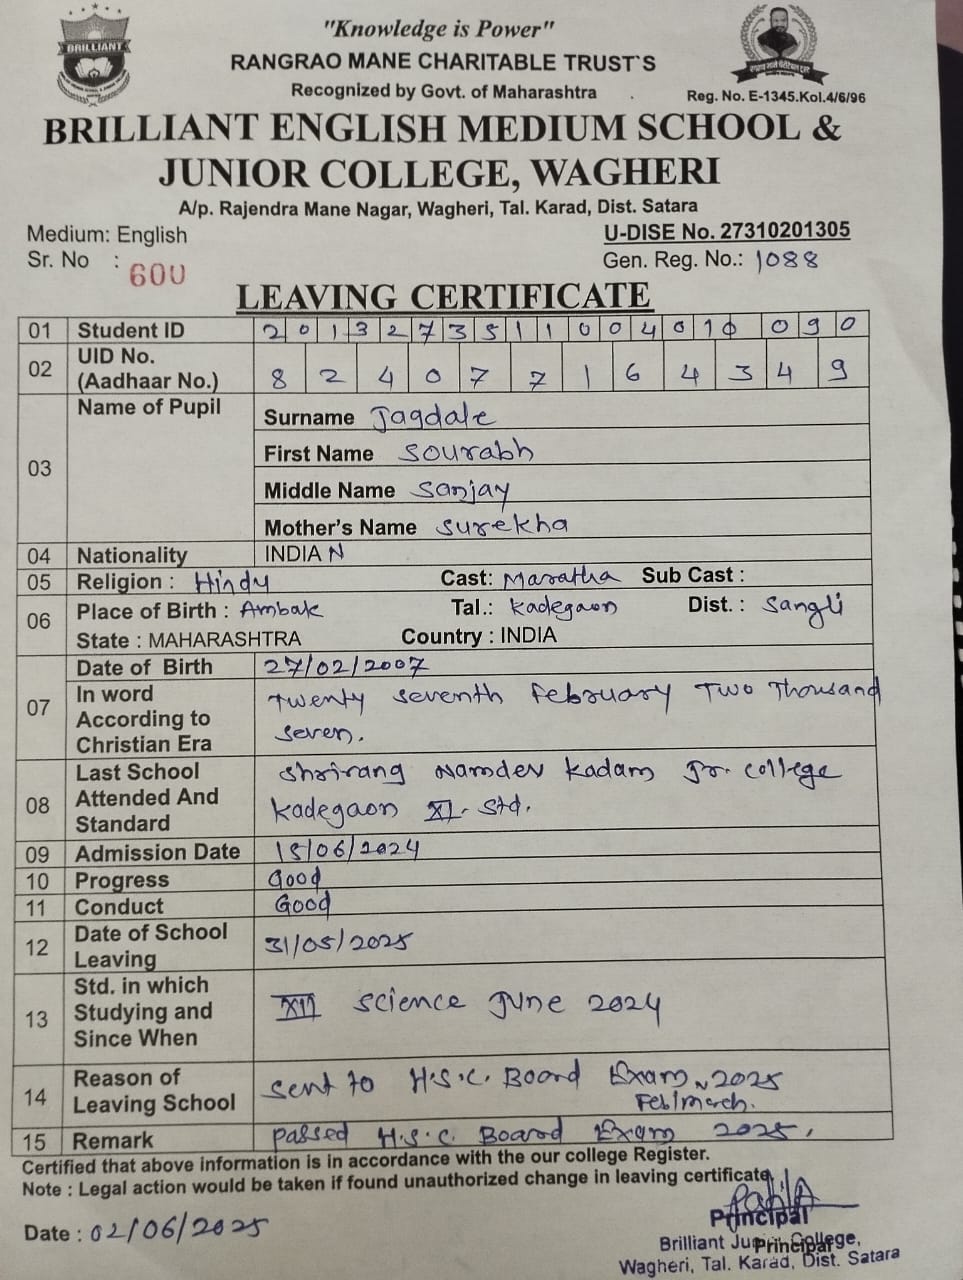 BRILLIANT
"Knowledge is Power"
RANGRAO MANE CHARITABLE TRUST`S
Recognized by Govt. of Maharashtra
Reg. No. E-1345.Kol.4/6/96
BRILLIANT ENGLISH MEDIUM SCHOOL &
JUNIOR COLLEGE, WAGHERI
A/p. Rajendra Mane Nagar, Wagheri, Tal. Karad, Dist. Satara
Medium: English
U-DISE No. 27310201305
Sr. No : 600
Gen. Reg. No.: 1088
LEAVING CERTIFICATE
01 Student ID 2 0 1 3 2 7 3 5 1 1 0 0 4 0 1 0 0 9 0
02 UID No. (Aadhaar No.) 8 2 4 0 7 7 1 6 4 3 4 9
03 Name of Pupil
Surname Jagdale
First Name Sourabh
Middle Name Sanjay
Mother's Name Surekha
04 Nationality INDIAN
05 Religion : Hindu Cast: Maratha Sub Cast :
06 Place of Birth : Ambak Tal.: Kadegaon Dist. : Sangli
State : MAHARASHTRA Country : INDIA
07 Date of Birth 27/02/2007
In word According to Christian Era Twenty Seventh February Two Thousand
Seven.
08 Last School Attended And Standard Shrirang Namdev Kadam Jr. College
Kadegaon XI. Std.
09 Admission Date 15/06/2024
10 Progress Good
11 Conduct Good
12 Date of School Leaving 31/05/2025
13 Std. in which Studying and Since When XII Science June 2024
14 Reason of Leaving School Sent to H.S.C. Board Exam 2025
Feb/March.
15 Remark Passed H.S.C. Board Exam 2025.
Certified that above information is in accordance with the our college Register.
Note : Legal action would be taken if found unauthorized change in leaving certificate.
Date : 02/06/2025
Principal
Principal
Brilliant Junior College,
Wagheri, Tal. Karad, Dist. Satara